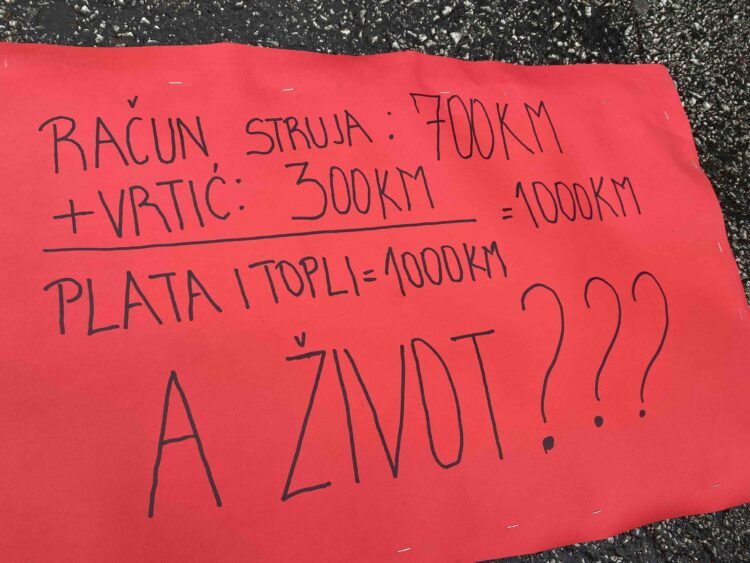 RAČUN, STRUJA: 700KM
+VRTIĆ: 300KM = 1000KM
PLATA I TOPLI = 1000KM
A ŽIVOT???